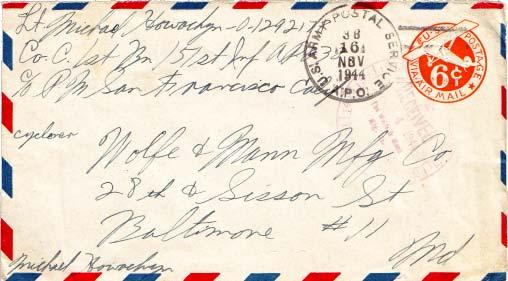 Lt. Michael Howachyn
Co. C. 1st Bn 151st Inf APO 38
c/o P M San Francisco Calif
U.S. ARMY POSTAL SERVICE
38
16
NOV
1944
A.P.O.
U.S. POSTAGE
6¢
VIA AIR MAIL
RECEIVED
Wolfe & Mann Mfg Co.
28th & Sisson St
Baltimore #11
Md
Michael Howachyn